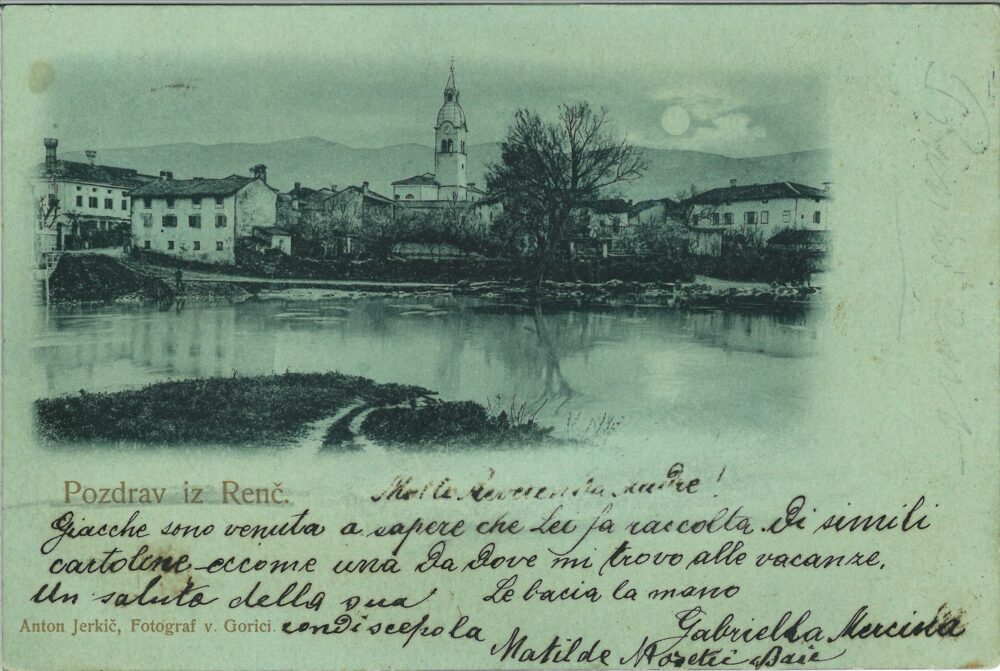 Pozdrav iz Renč.
Molto Reverenda Madre!
Giacche sono venuta a sapere che Lei fa raccolta di simili
cartoline eccome una da dove mi trovo alle vacanze.
Un saluto della sua Le bacia la mano
condiscepola Gabriella
Matilde
Anton Jerkič, Fotograf v. Gorici.